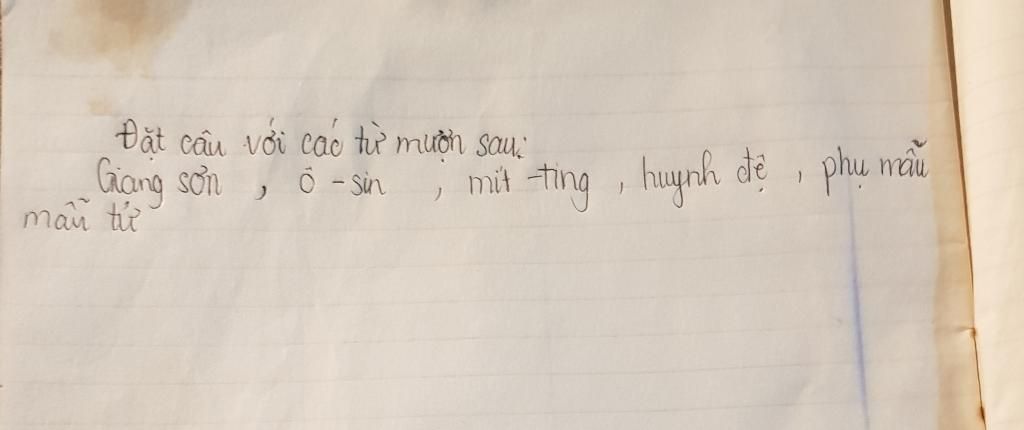 Đặt câu với các từ mượn sau:
Giang sơn , ô - sin , mít - ting , huynh đệ , phụ mẫu
mẫu tử